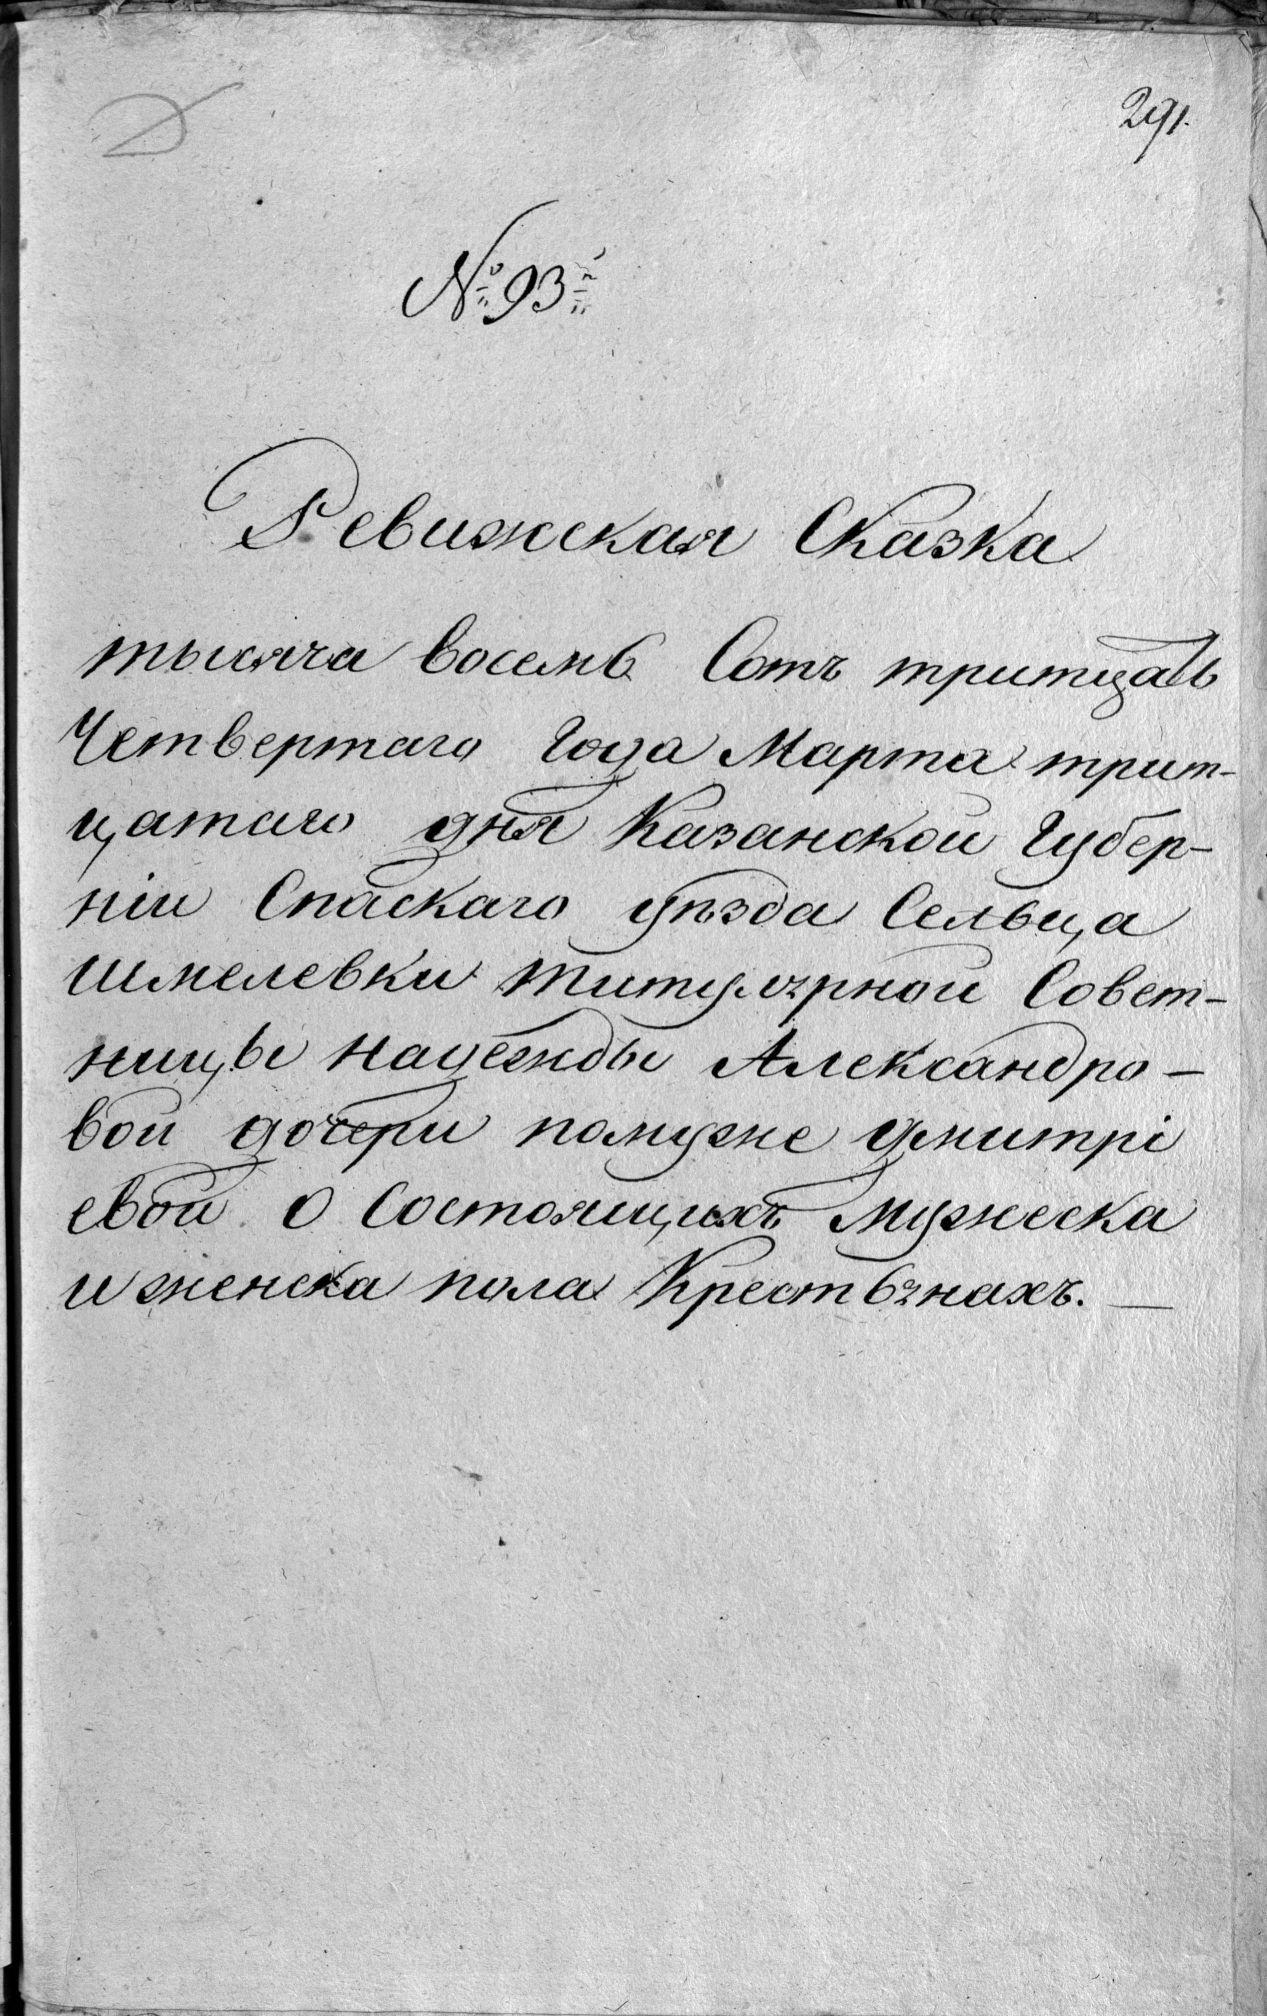 291.
№ 93й
Ревижская Сказка
тысяча восемь Сотъ тритцать
Четвертаго Года Марта трит-
цатаго дня Казанской Губер-
ніи Спаскаго уѣзда Сельца
Шмелевки титулярной Совет-
ницы Надежды Александро-
вой дочери помуже Дмитрі
евой о Состоящихъ мужеска
и женска пола Крестьянахъ.